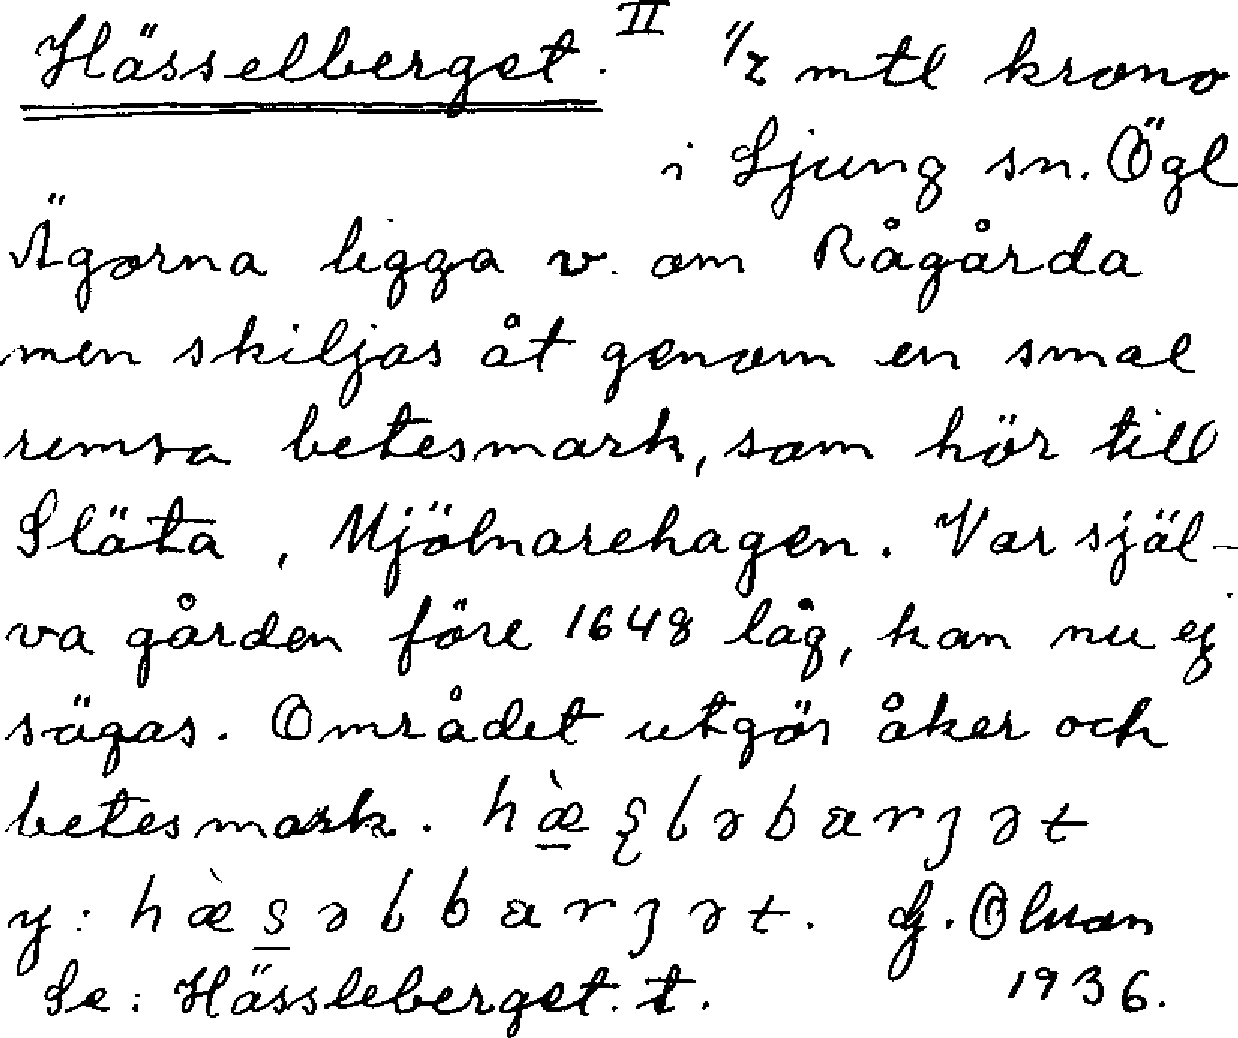 Hässelberget. II 1/2 mtl krono
i Ljung sn. Ögl
Ägorna ligga v. om Rågårda
men skiljas åt genom en smal
remsa betesmark, som hör till
Släta, Mjölnarehagen. Var själ-
va gården före 1648 låg, kan nu ej
sägas. Området utgör åker och
betesmark.
y:
Se: Hässleberget. t. 1936.